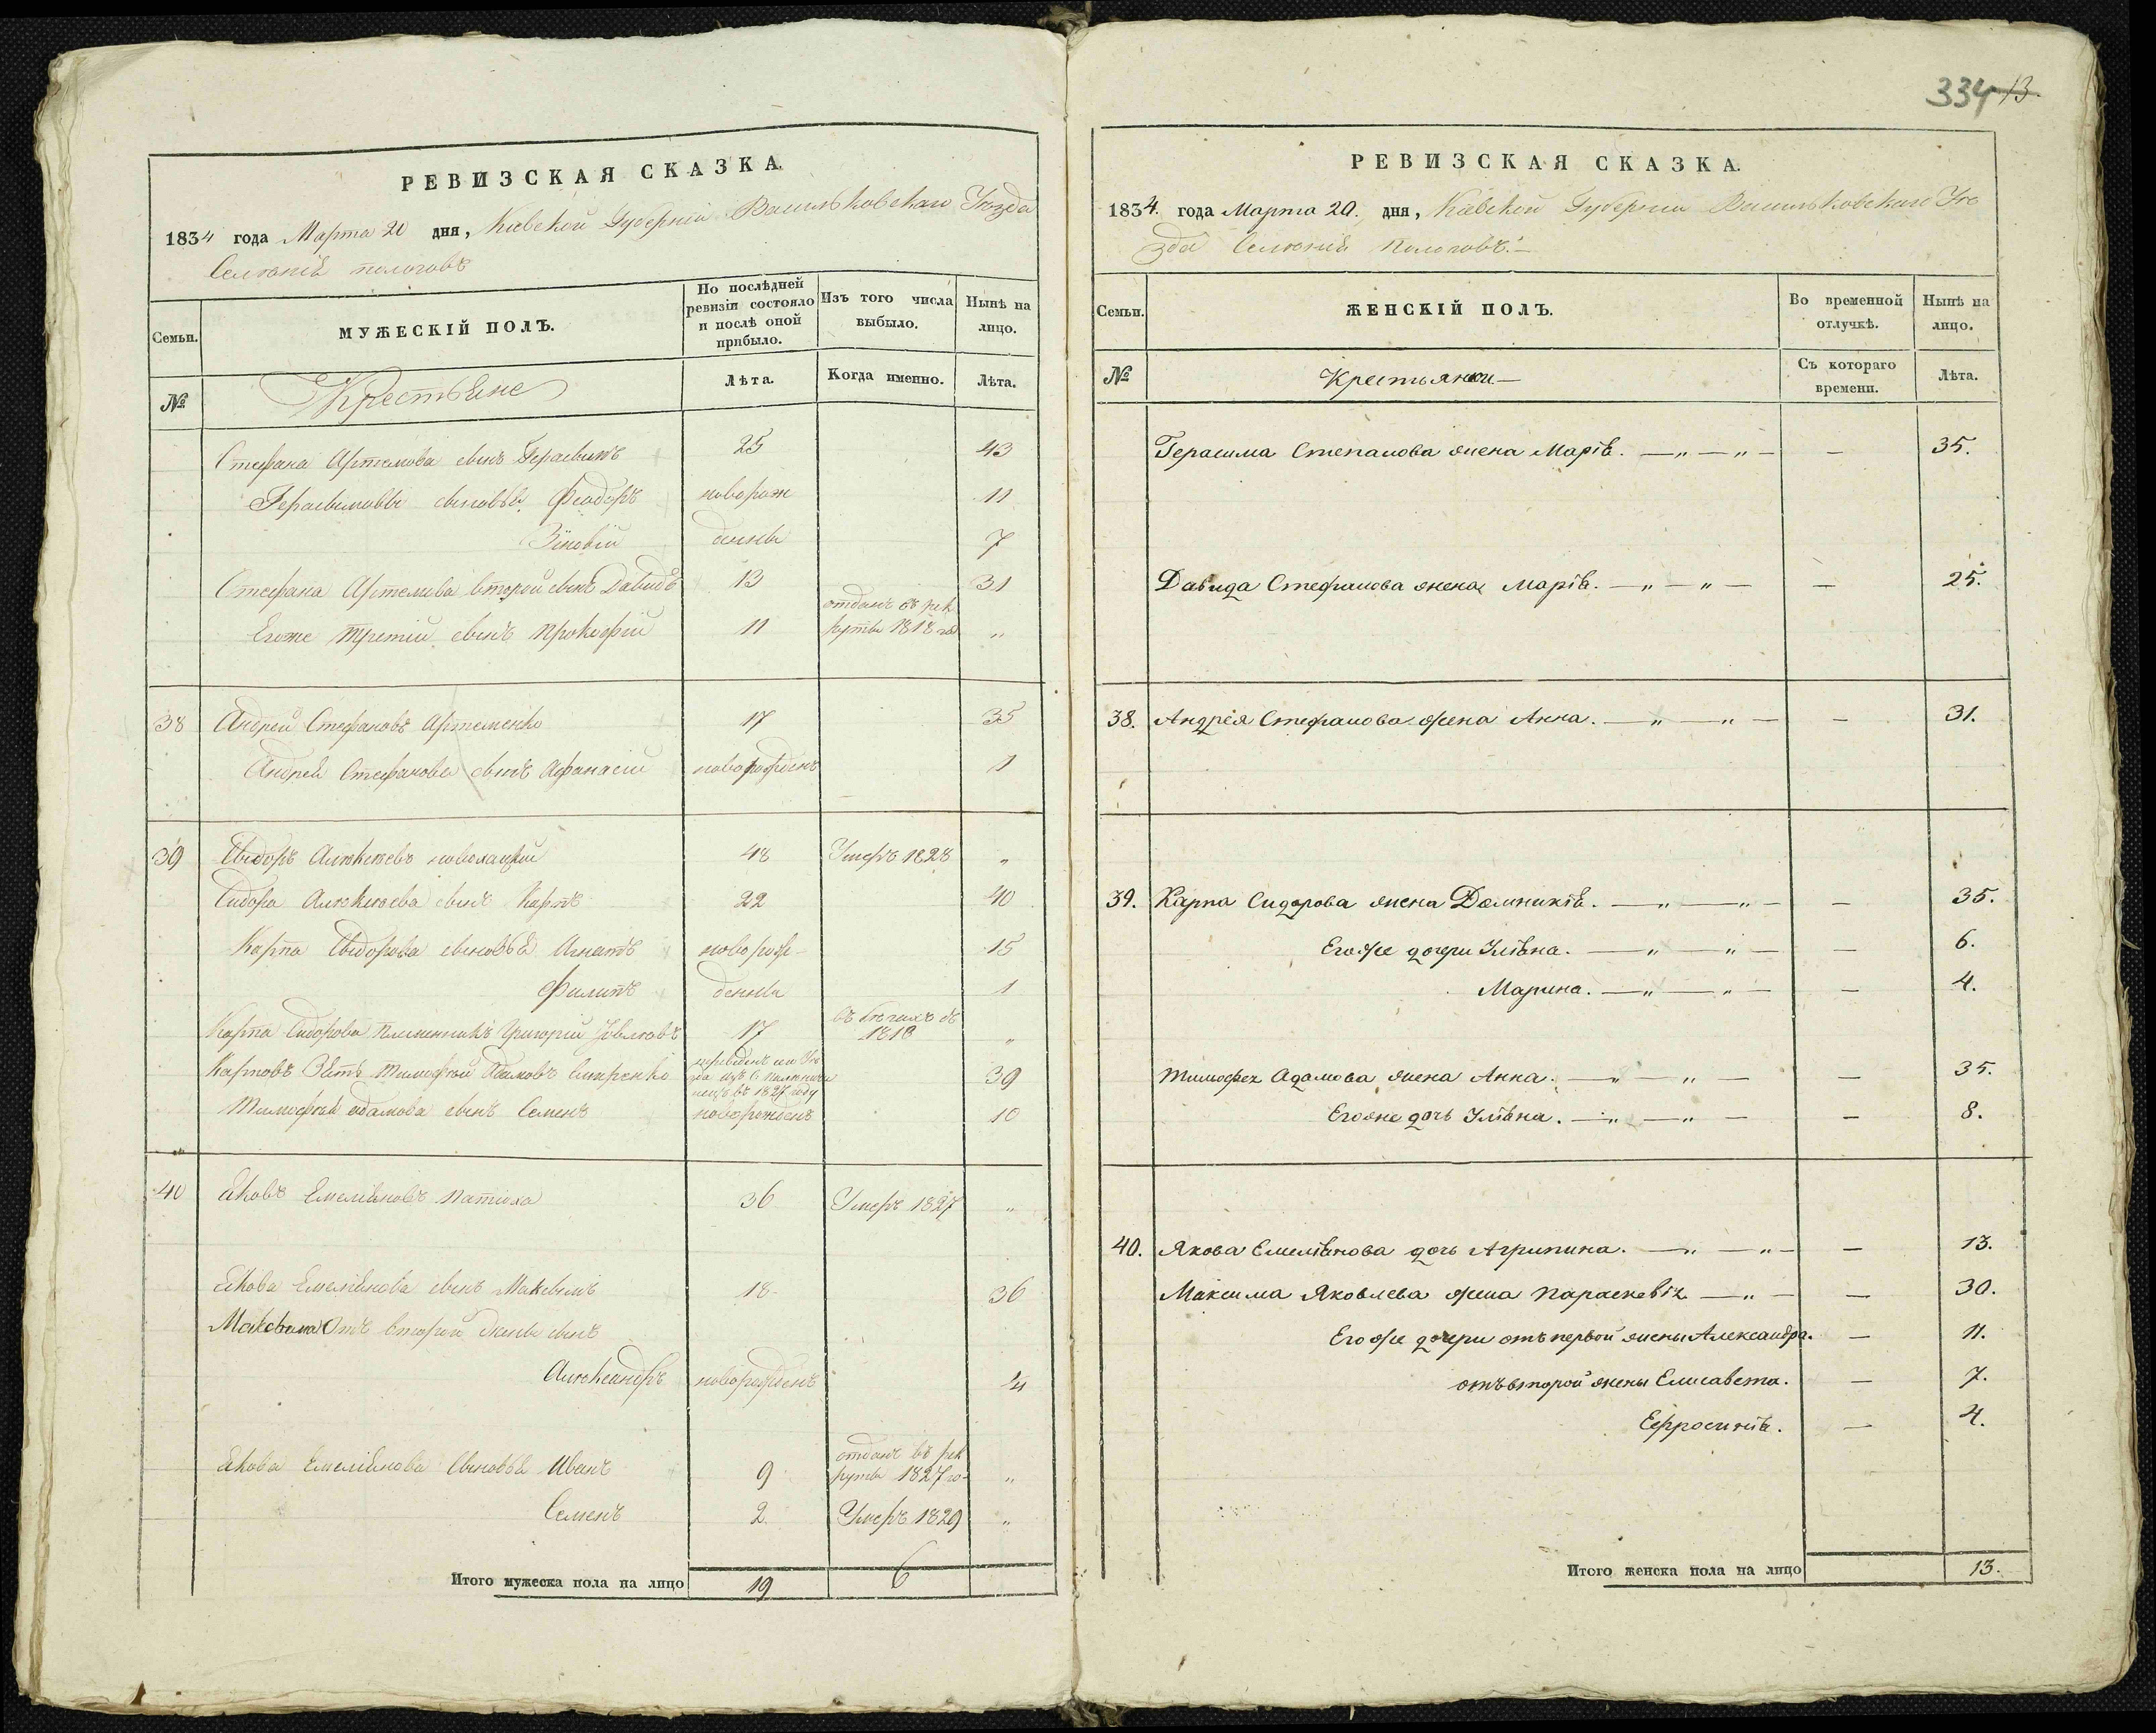 РЕВИЗСКАЯ СКАЗКА.
1834 года Марта 20 дня, Кіевской Губерніи Васильковскаго Уѣзда
Селенія пологовъ
Семьи.
МУЖЕСКІЙ ПОЛЪ.
По послѣдней ревизіи состояло и послѣ оной прибыло.
Изъ того числа выбыло.
Нынѣ на лицо.
№
Крестьяне
Лѣта.
Когда именно.
Лѣта.
Стефана Артемова сынъ Герасимъ 25 43
Герасимовы сыновья Феодоръ новорож 11
Зиновій денны 7
Стефана Артемова второй сынъ Давидъ 13 31
Егоже третій сынъ Прокофій 11 отданъ въ рек
руты 1818 го „
38 Андрей Стефановъ Артеменко 17 35
Андрея Стефанова сынъ Афанасій новорожденъ 1
39 Сидоръ Алексѣевъ 48 Умеръ 1828 „
Сидора Алексѣева сынъ Карпъ 22 40
Карпа Сидорова сыновья Игнатъ новорож- 15
Филипъ денны 1
Карпа Сидорова племянникъ Григорій 17 въ бѣгахъ съ
1818 „
Карповъ Зять Тимофей Адамовъ 39
въ 1827 году
Тимофея Адамова сынъ Семенъ новорожденъ 10
40 Яковъ Емеліяновъ Патюха 36 Умеръ 1827 „
Якова Емеліянова сынъ Максимъ 18 36
Максима Отъ второй жены сынъ
Александръ новорожденъ
Якова Емеліянова Сыновья Иванъ 9 отданъ въ рек
руты 1827 го „
Семенъ 2 Умеръ 1829 „
Итого мужеска пола на лицо 19 6
334 13.
РЕВИЗСКАЯ СКАЗКА.
1834. года Марта 20. дня, Кіевской Губерніи Васильковскаго Уѣ
зда Селенія Пологовъ.
Семьи.
ЖЕНСКІЙ ПОЛЪ.
Во временной отлучкѣ.
Нынѣ на лицо.
№
Крестьянки —
Съ котораго времени.
Лѣта.
Герасима Степанова жена Марія. — „ — „ — — 35.
Давида Стефанова жена Марія. — „ — „ — — 25.
38. Андрея Стефанова жена Анна. — „ — „ — — 31.
39. Карпа Сидорова жена Домникія. — „ — „ — — 35.
Егоже дочери Уліяна. — „ — „ — — 6.
Марина. — „ — „ — — 4.
Тимофея Адамова жена Анна. — „ — „ — — 35.
Егоже дочь Уліяна. — „ — „ — — 8.
40. Якова Емеліянова дочь Агрипина. — „ — „ — — 13.
Максима Яковлева жена Параскевія — „ — — 30.
Егоже дочери отъ первой жены Александра. — 11.
отъ второй жены Елисавета. — 7.
Ефросинія. — 4.
Итого женска пола на лицо 13.